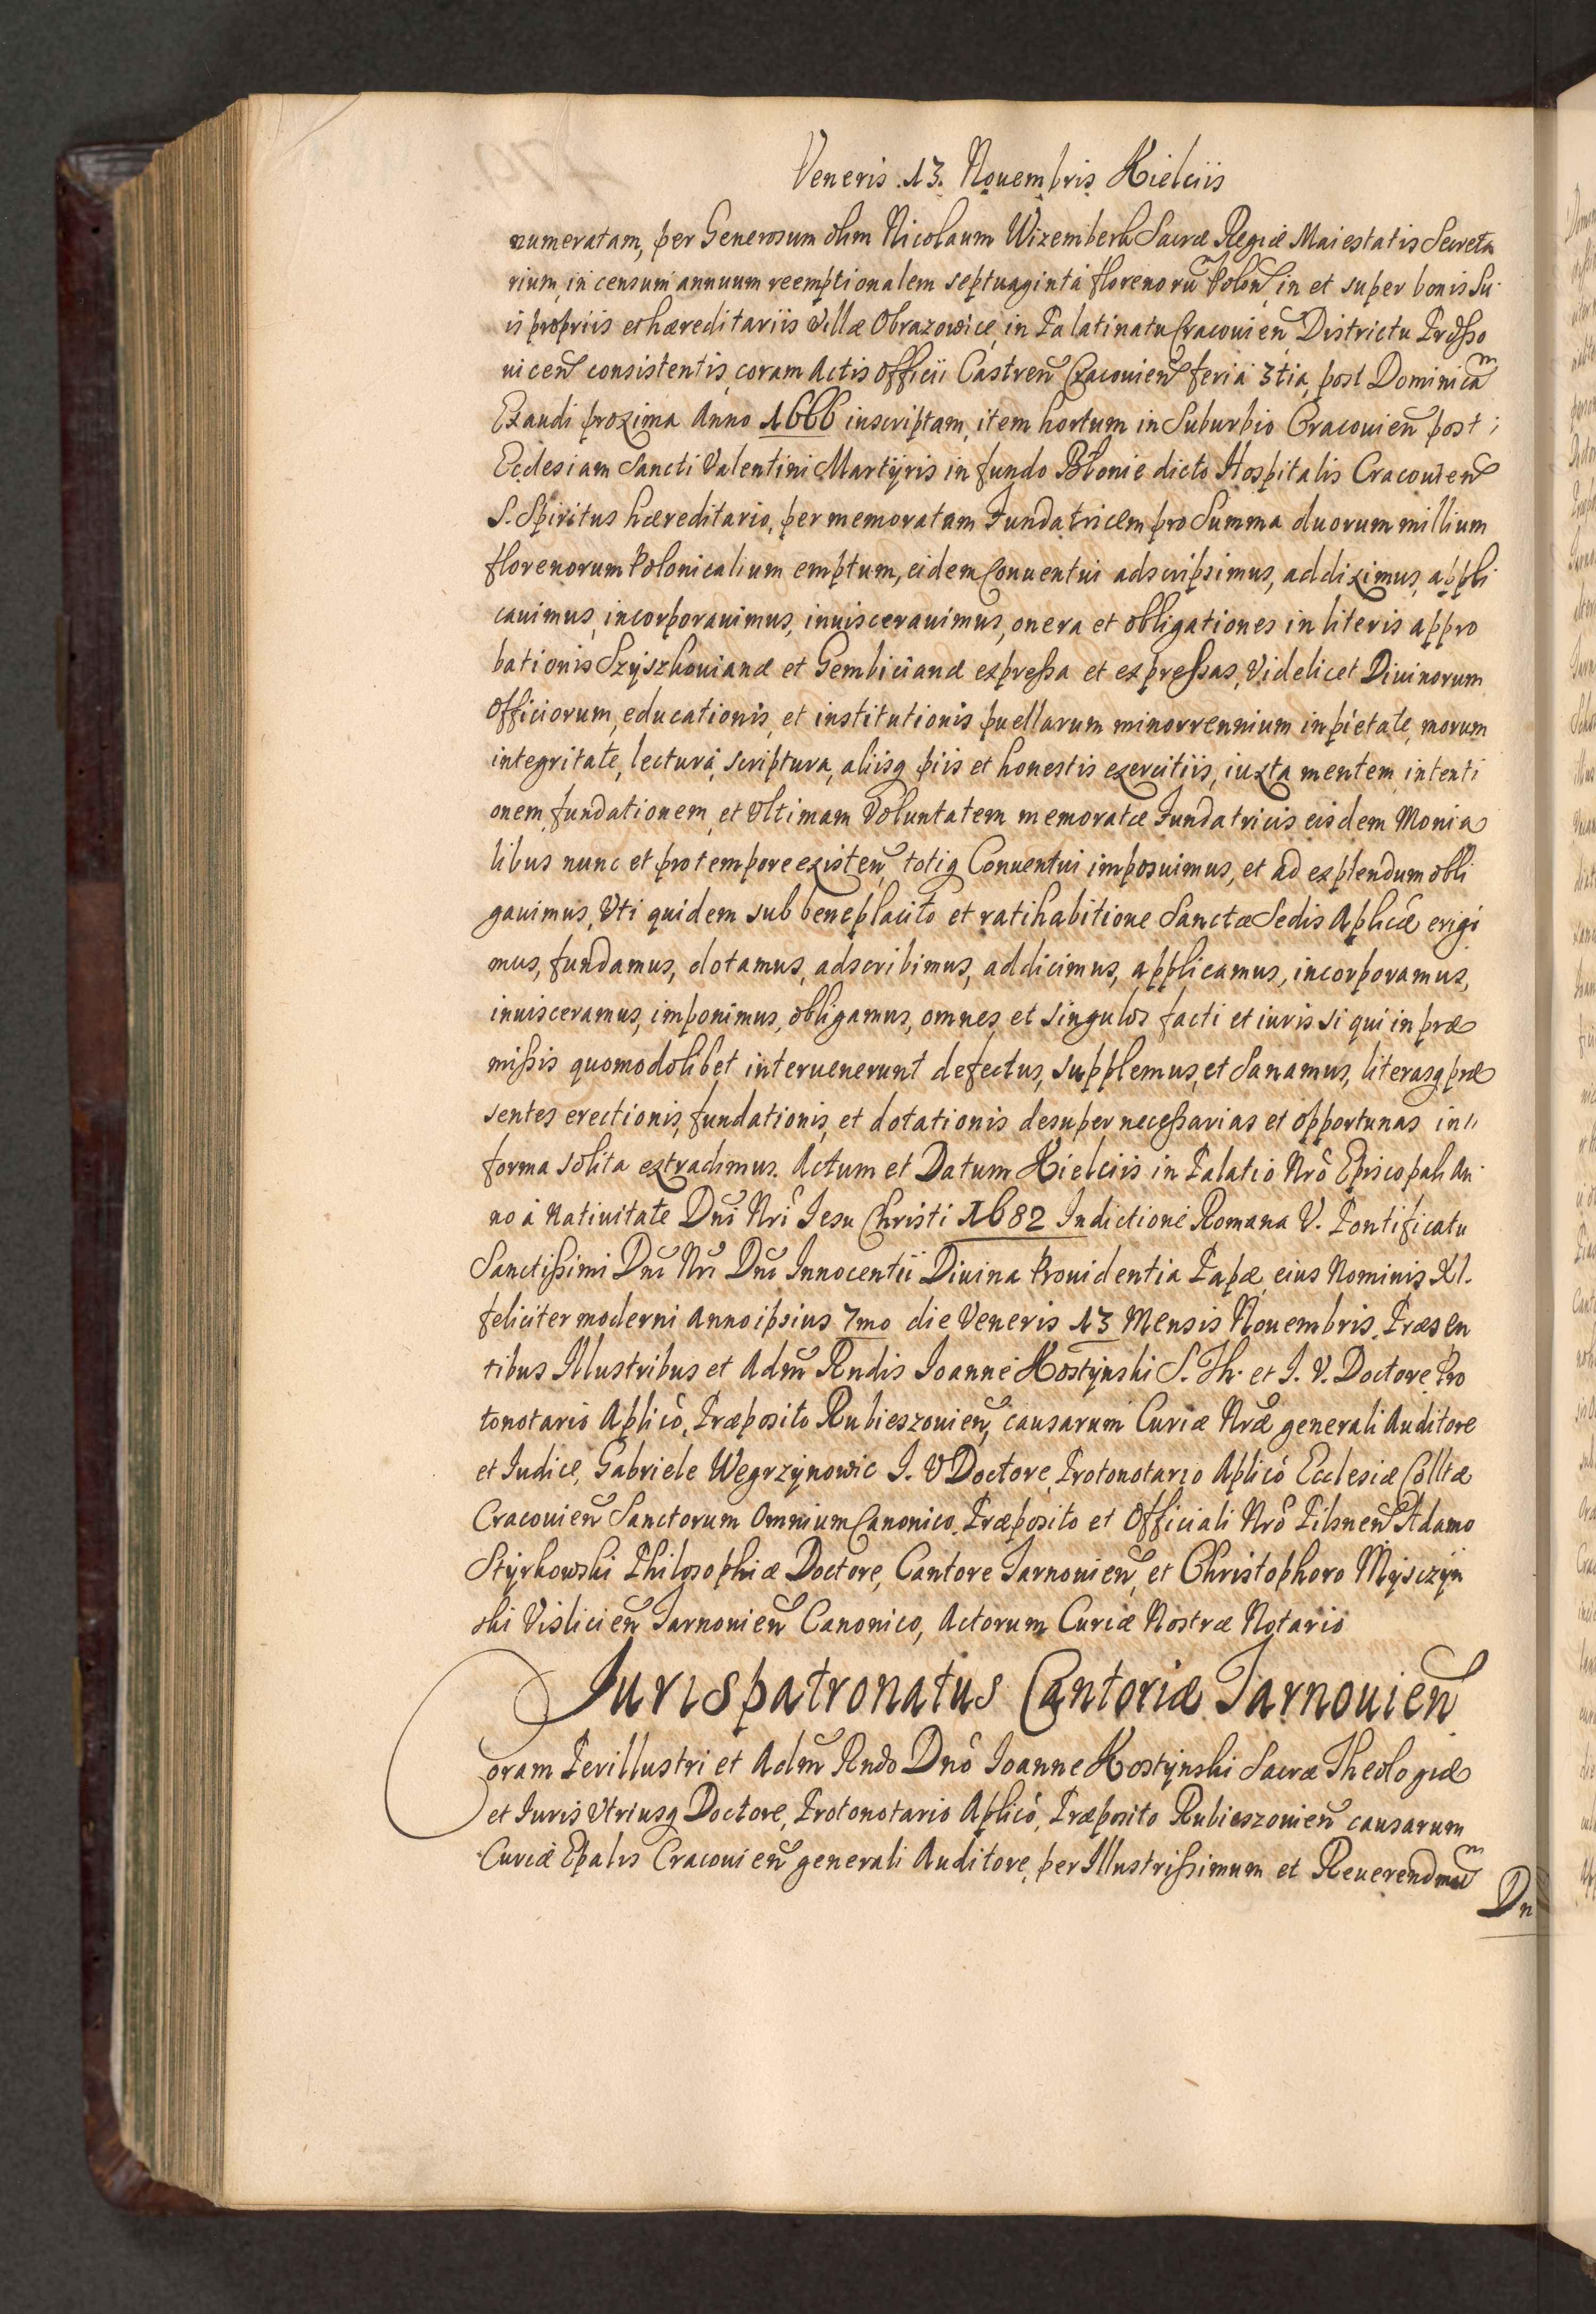 Veneris .13. Nouembris Kielciis
numeratam, per Generosum olim Nicolaum Wizemberk Sacræ Regiæ Maiestatis Secreta
rium, in censum annuum reemptionalem septuaginta florenorũ Polon̄, in et super bonis su
is propriis et hæreditariis villæ Obrazowice, in Palatinatu Cracouien̄ Districtu Proszo
uicen̄ consistentis, coram Actis Officii Castren̄ Cracouien̄ feria 3tia, post Dominicam
Exaudi proxima Anno 1666 inscriptam, item hortum in Suburbio Cracouien̄ post
Ecclesiam Sancti Valentini Martÿris in fundo Błonie dicto Hospitalis Cracouien̄
S. Spiritus hæreditario, per memoratam Fundatricem pro Summa duorum millium
florenorum Polonicalium emptum, eidem Conuentui adscripsimus, addiximus, appli
cauimus, incorporauimus, inuiscerauimus, onera et obligationes in literis appro
bationis Szÿszkouianæ et Gembicianæ expressa et expressas, Videlicet Diuinorum
Officiorum, educationis, et institutionis puellarum minorrennium in pietate, morum
integritate, lectura, scriptura, aliisq̃ piis et honestis exercitiis, iuxta mentem, intenti
onem, fundationem, et Vltimam Voluntatem memoratæ Fundatricis eisdem Monia
libus nunc et pro tempore existen̄, totiq̃ Conuentui imposuimus, et ad explendum obli
gauimus, Vti quidem sub beneplacito et ratihabitione Sanctæ Sedis Aplicæ erigi
mus, fundamus, dotamus, adscribimus, addicimus, applicamus, incorporamus,
inuisceramus, imponimus, obligamus, omnes et singulos facti et iuris si qui in præ
missis quomodolibet interuenerunt defectus, supplemus, et Sanamus, literasq̃ præ
sentes erectionis, fundationis, et dotationis desuper necessarias et opportunas in
forma solita extradimus. Actum et Datum Kielciis in Palatio Nrô Episcopali An
no à Natiuitate Dn̄i Nr̄i Iesu Christi 1682 Indictione Romana V. Pontificatu
Sanctissimi Dn̄i Nr̄i Dn̄i Innocentii Diuina Prouidentia Papæ, eius Nominis XI.
feliciter moderni Anno ipsius 7mo die Veneris 13 Mensis Nouembris. Præsen
tibus Illustribus et Adm̄ Rndis Ioanne Kostÿnski S. Th. et I. V. Doctore Pro
tonotario Aplicô, Præposito Rubieszouien̄, causarum Curiæ Nræ generali Auditore
et Iudice, Gabriele Wegrzÿnowic I. V Doctore, Protonotario Aplicô Ecclesiæ Colltæ
Cracouien̄ Sanctorum Omnium Canonico, Præposito et Officiali Nrô Pilsnen̄ Adamo
Stÿrkowski Philosophiæ Doctore, Cantore Tarnouien̄, et Christophoro Mÿsczÿn
ski Vislicien̄ Tarnouien̄ Canonico, Actorum Curiæ Nostræ Notario
Iurispatronatus Cantoriæ Tarnouien̄
Coram Perillustri et Adm̄ Rndo Dnô Ioanne Kostÿnski Sacræ Theologiæ
et Iuris Vtriusq̃ Doctore, Protonotario Aplicô, Præposito Rubieszouien̄ causarum
Curiæ Epalis Cracouien̄ generali Auditore, per Illustrissimum et Reuerendmũ
Dn